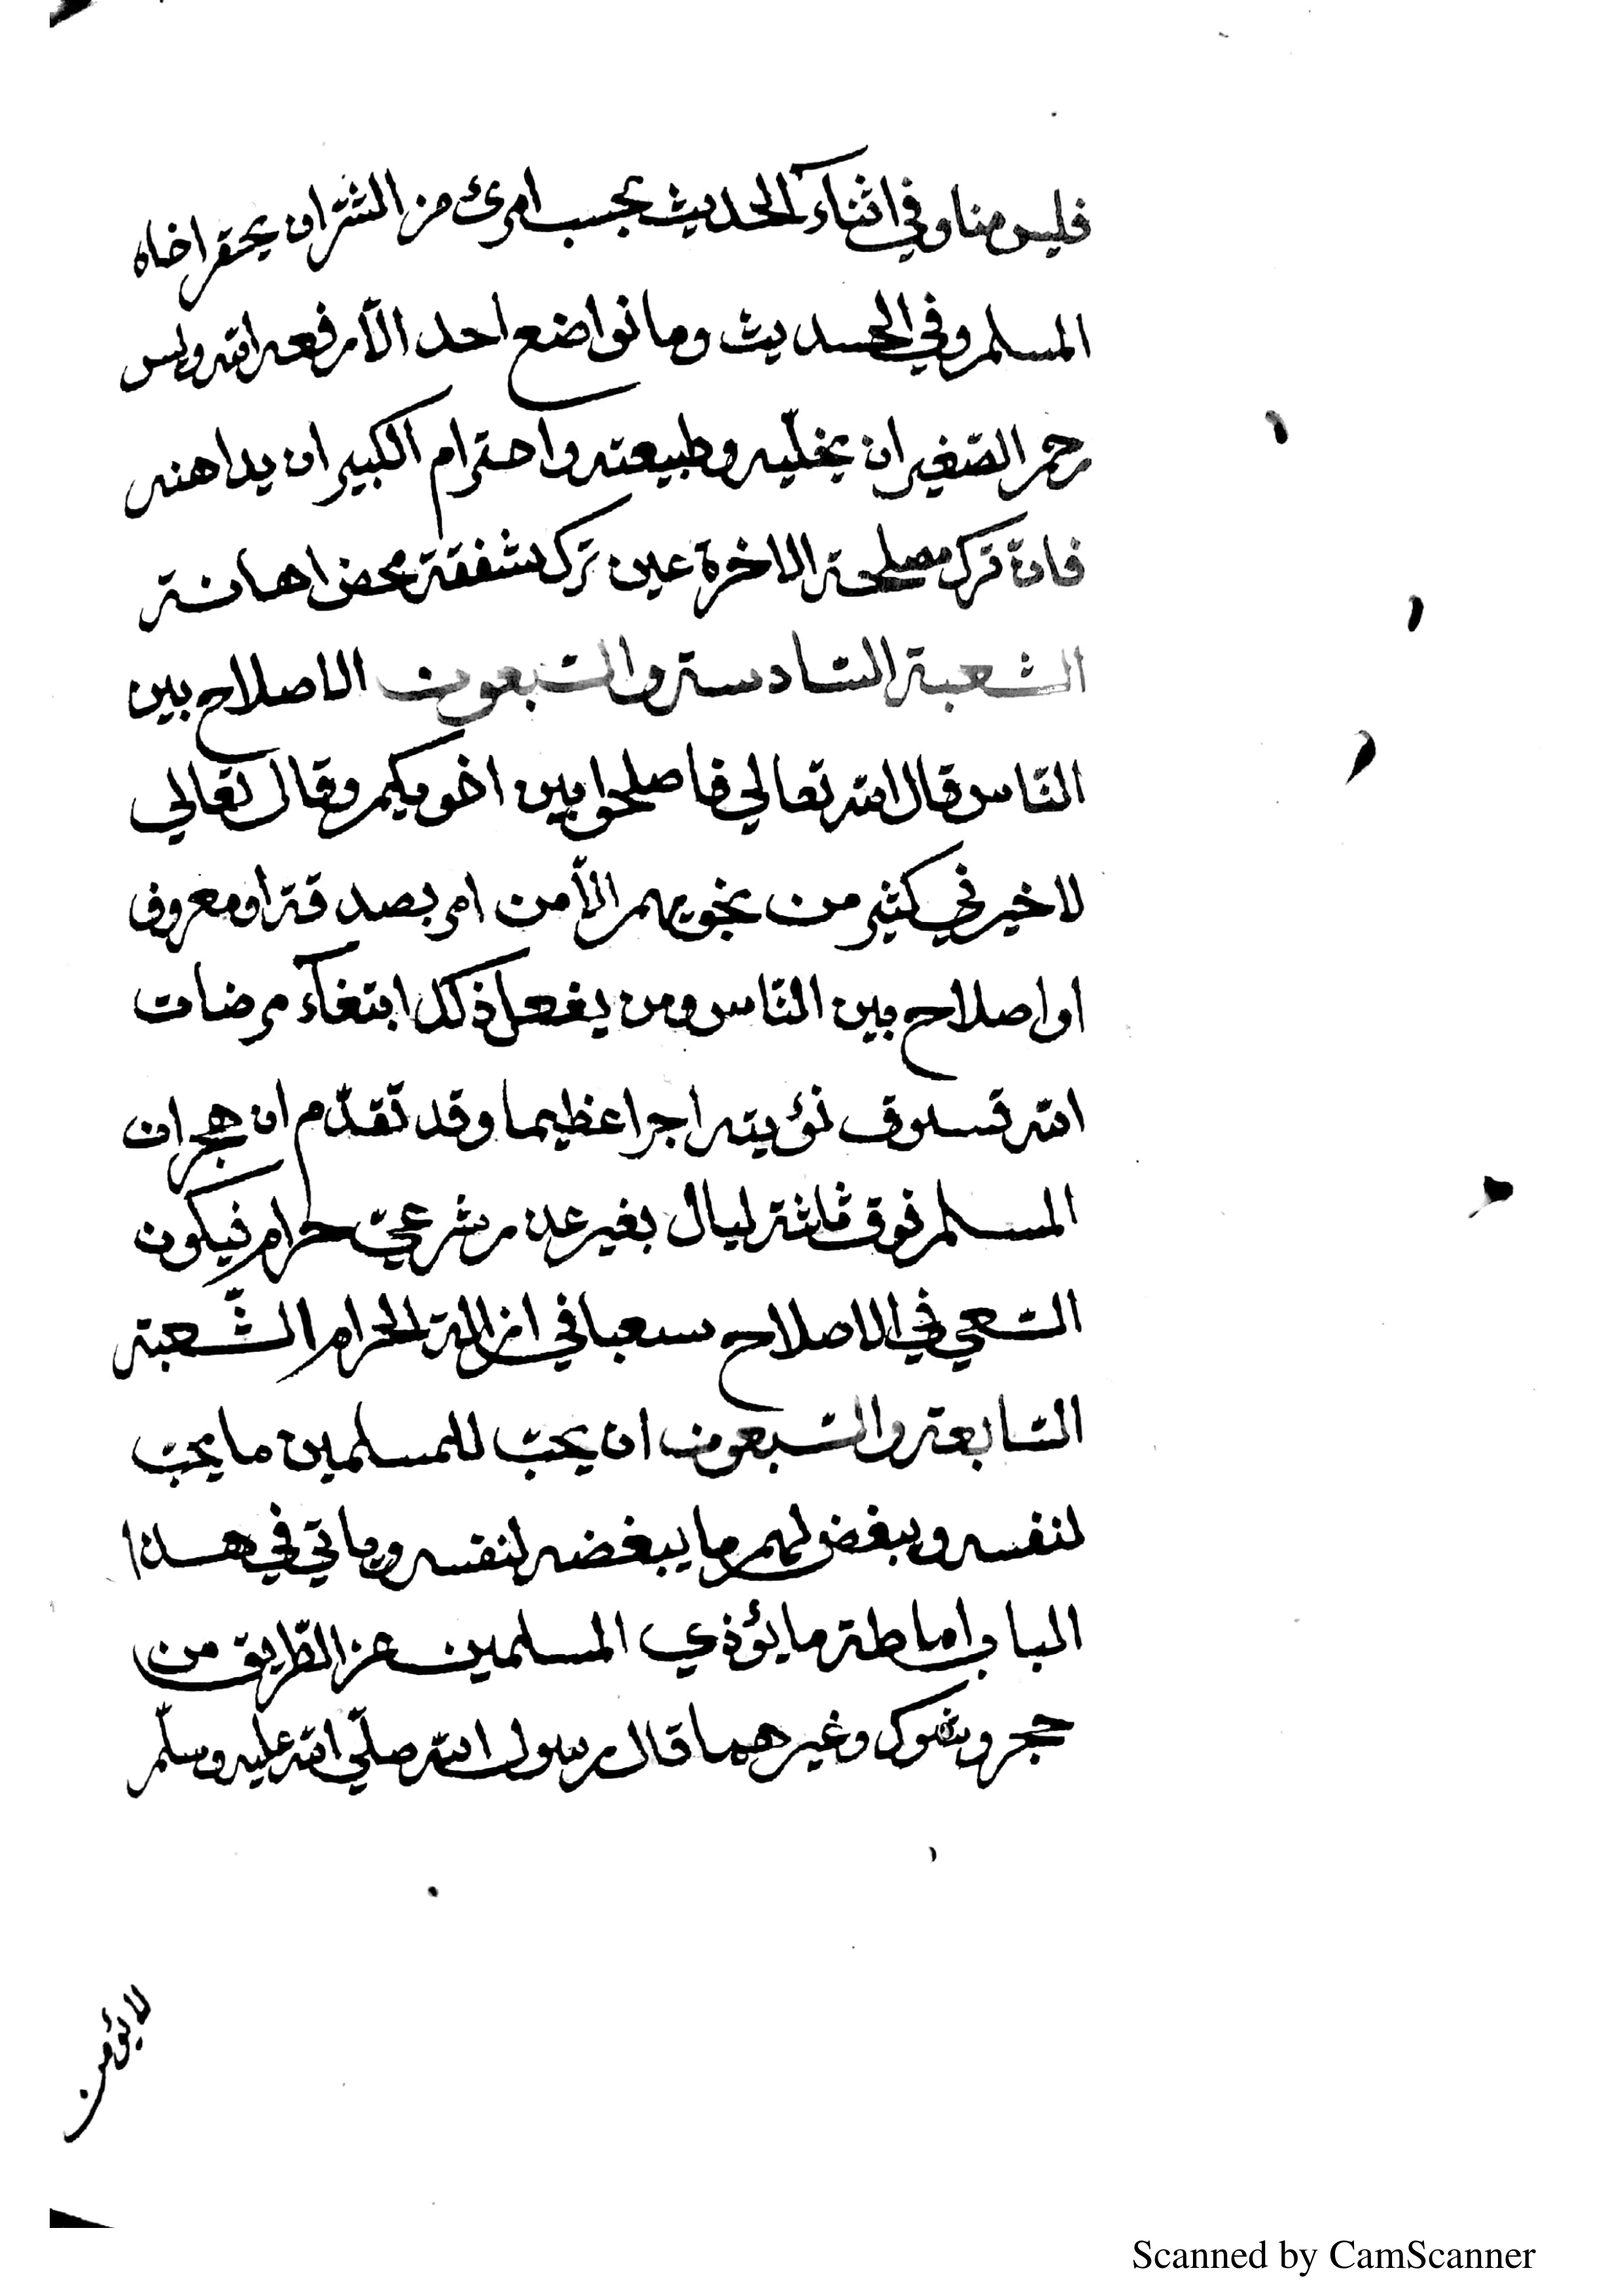 فليس منا وفي اثناء الحديث بحسب امرئ من الشر ان يحقر اخاه
المسلم وفي الحديث وما تواضع احد الّا رفعه الله وليس
رحم الصّغير ان يخلّيه وطبيعته واحترام الكبير ان يداهنه
فان ترك مصلحة الاخرة عين ترك شفقة محض اهانة
الشعبة السّادسة والسّبعون الاصلاح بين
النّاس قال الله تعالي فاصلحوا بين اخويكم وقال تعالي
لا خير في كثير من نجويهم الّا من امر بصدقة او معروف
او اصلاح بين النّاس ومن يفعل ذلك ابتغآء مرضات
الله فسوف نؤيته اجرا عظيما وقد تقدّم ان هجران
المسلم فوق ثلثة ليال بغير عذر شرعيّ حرام فيكون
السّعي في الاصلاح سعيا في ازالة الحرام الشّعبة
السّابعة والسّبعون ان يحبّ للمسلمين ما يحبّ
لنفسه ويبغض لهم ما يبغضه لنفسه وياتي في هذا
الباب اماطة ما يؤذي المسلمين عن الطّريق من
حجر وشوك وغيرهما قال رسول الله صلّي الله عليه وسلّم
لا يؤمن
Scanned by CamScanner